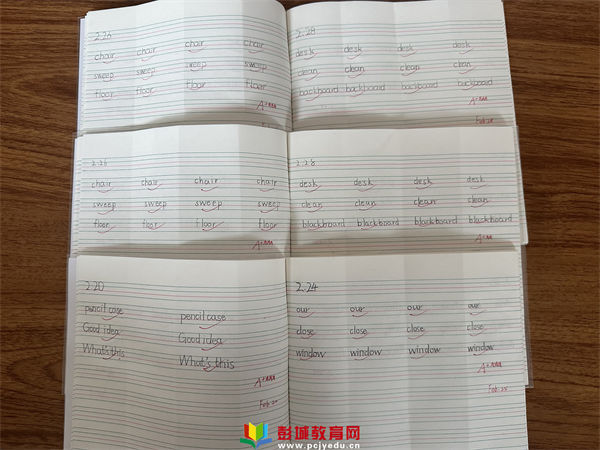 2.26
chair chair chair chair
sweep sweep sweep sweep
floor floor floor floor
A+
2.28
desk desk desk desk
clean clean clean clean
backboard backboard backboard backboard
A+
Feb.28
2.26
chair chair chair chair
sweep sweep sweep sweep
floor floor floor floor
A+
2.28
desk desk desk desk
clean clean clean clean
blackboard blackboard blackboard blackboard
A+
2.20
pencil case pencil case
Good idea Good idea
What's this What's this
A+
Feb.20
2.24
our our our our
close close close close
window window window window
A+
Feb.25
彭城教育网
www.pcjyedu.cn